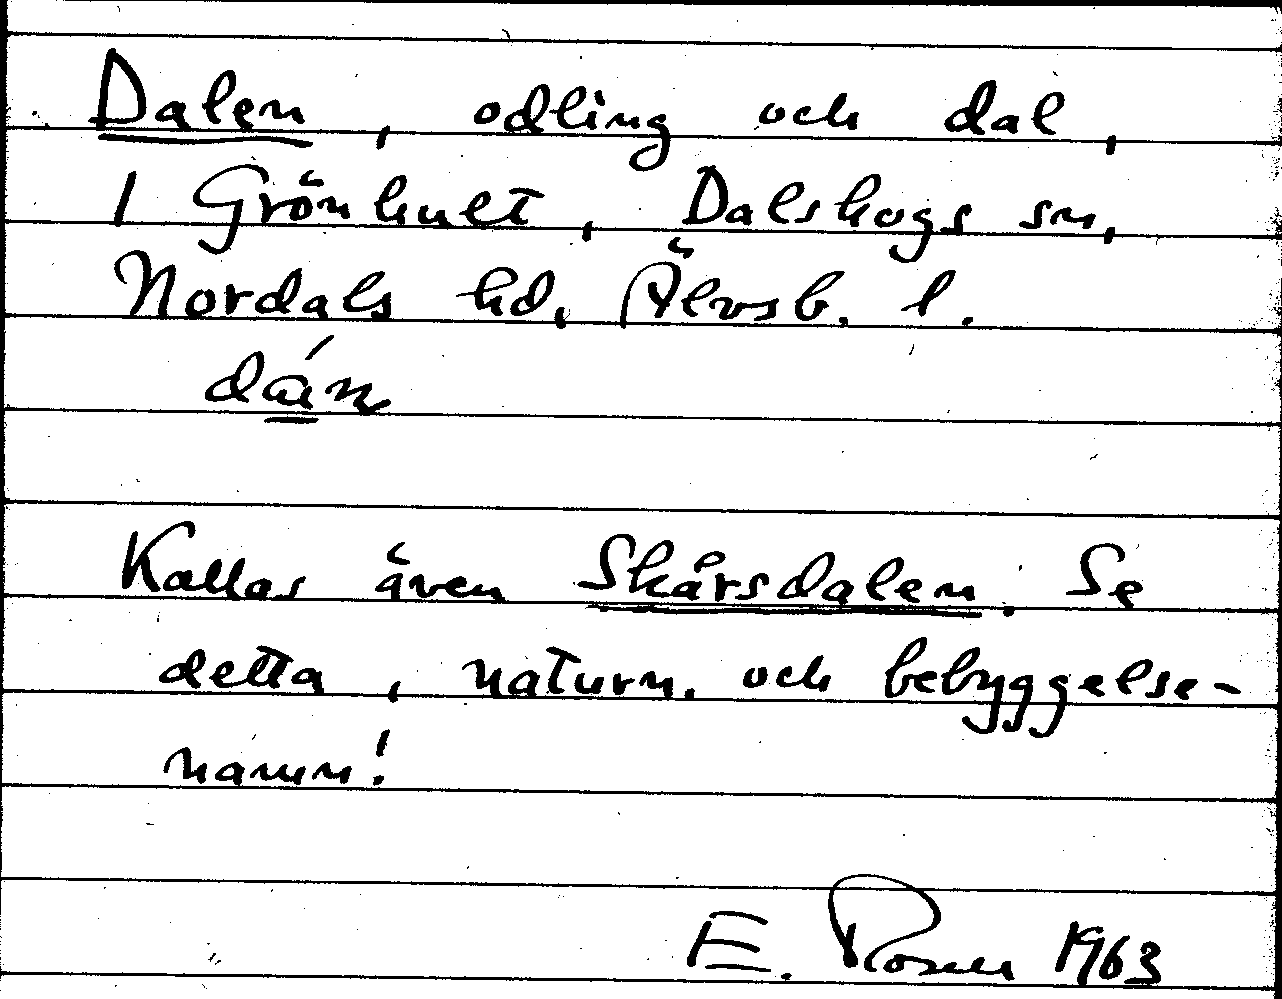 Dalen, odling och dal,
1 Grönhult, Dalskogs sn,
Nordals hd, Älvsb. l.
dán
Kallas även Skårsdalen. Se
detta, naturn. och bebyggelse-
namn!
E. Rosen 1963